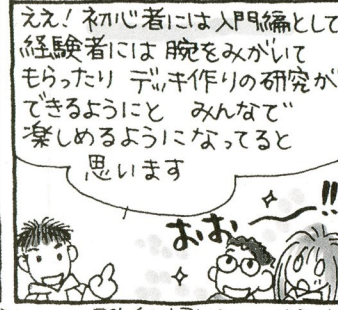 ええ！初心者には入門編として
経験者には腕をみがいて
もらったり デッキ作りの研究が
できるようにと みんなで
楽しめるようになってると
思います
おお〜!!